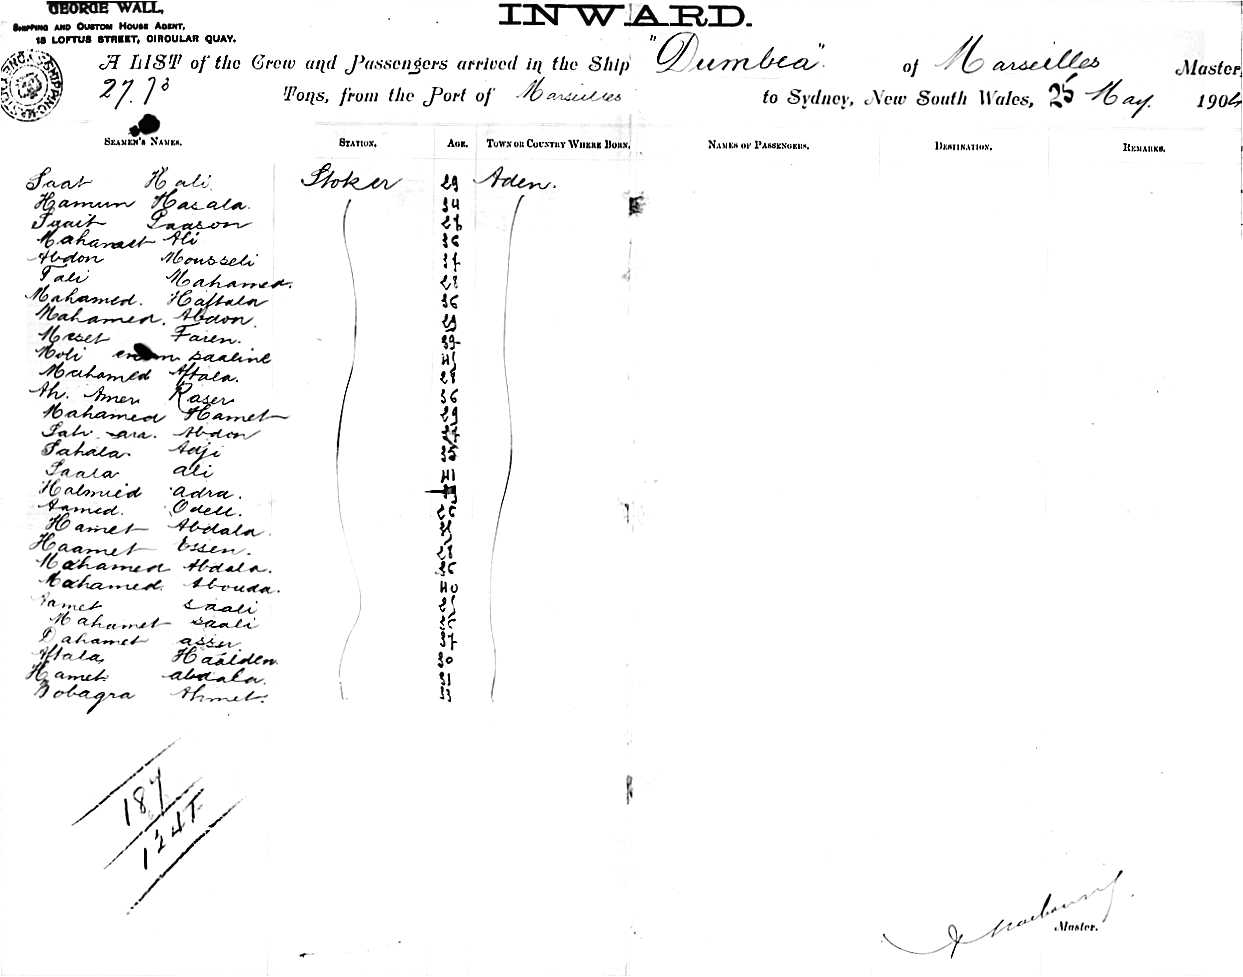 GEORGE WALL,
SHIPPING AND CUSTOM HOUSE AGENT,
18 LOFTUS STREET, CIRCULAR QUAY.
INWARD.
A LIST of the Crew and Passengers arrived in the Ship "Dumbea" of Marseilles Master,
27.73 Tons, from the Port of Marseilles to Sydney, New South Wales, 25 May. 1904
SEAMEN'S NAMES. STATION. AGE. TOWN OR COUNTRY WHERE BORN. NAMES OF PASSENGERS. DESTINATION. REMARKS.
Saat Hali Stoker 29 Aden.
Hamun Hasala. 34
Saait
Mahamet Ali 36
Abdon Mousseli
Tali Mahamed.
Mahamed. Haftala 26
Mahamed. Abdon. 29
Meset Faren.
Moli saaline
Mahamed Aftala.
Ah. Amer Raser 36
Mahamed Hamet 29
Abdon
Sahala. Adji
Saala ali 41
Halmied adra.
Aamed. Odell.
Hamet Abdala.
Haamet Essen.
Mahamed Abdala. 26
Mahamed. Abouda. 40
saali
Mahamet saali
Dahamet asser
Aftala Haalden
Hamet abdala.
Bobagra Ahmet.
187
124T
Master.